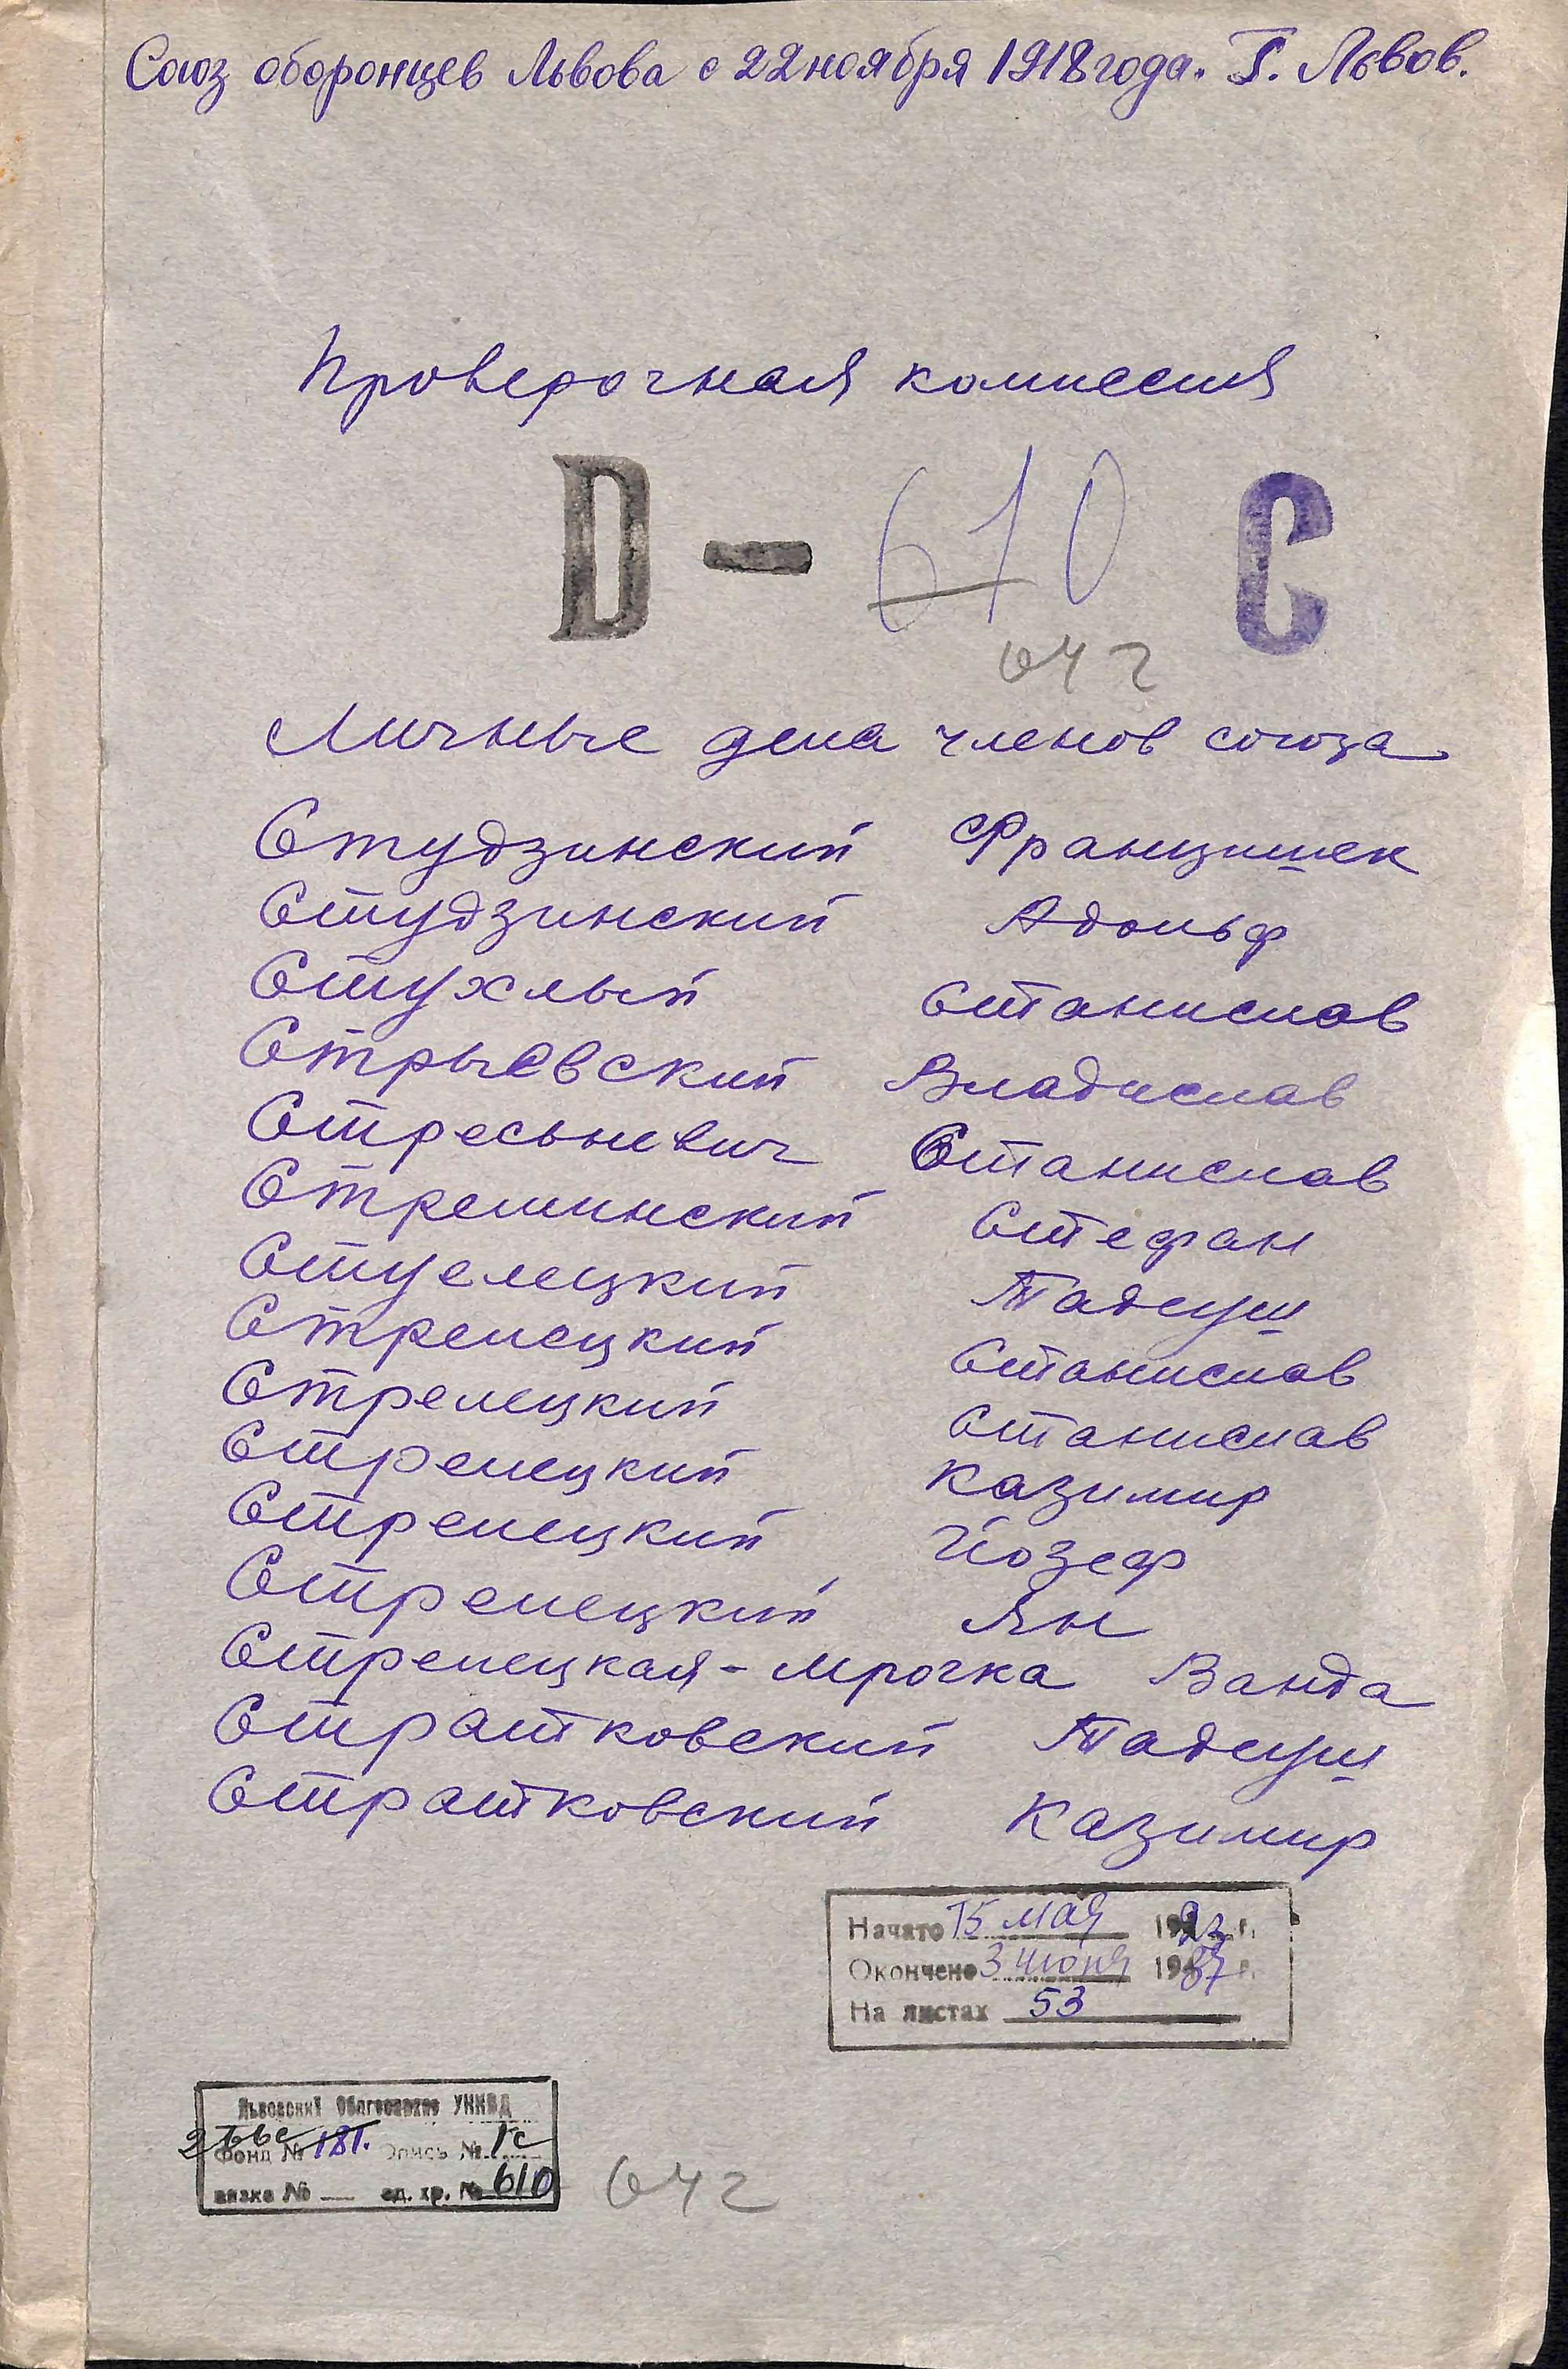 Союз оборонцев Львова с 22 ноября 1918 года. Г. Львов.
Проверочная комиссия
D — 610 С
642
Личные дела членов союза
Студзинский Францишек
Студзинский Адольф
Стухлый Станислав
Стрыевский Владислав
Стресьневич Станислав
Стреминский Стефан
Стуелецкий Тадеуш
Стрелецкий Станислав
Стрелецкий Станислав
Стрелецкий Казимир
Стрелецкий Йозеф
Стрелецкий Ян
Стрелецкая-Мрочка Ванда
Стратковский Тадеуш
Стратковский Казимир
Начато 15 мая 19 г.
Окончено 3 июня 1937 г.
На листах 53
Львовский Облгосархив УНКВД
Фонд № 181. Опись № 1с
вязка № — ед. хр. № 610
642